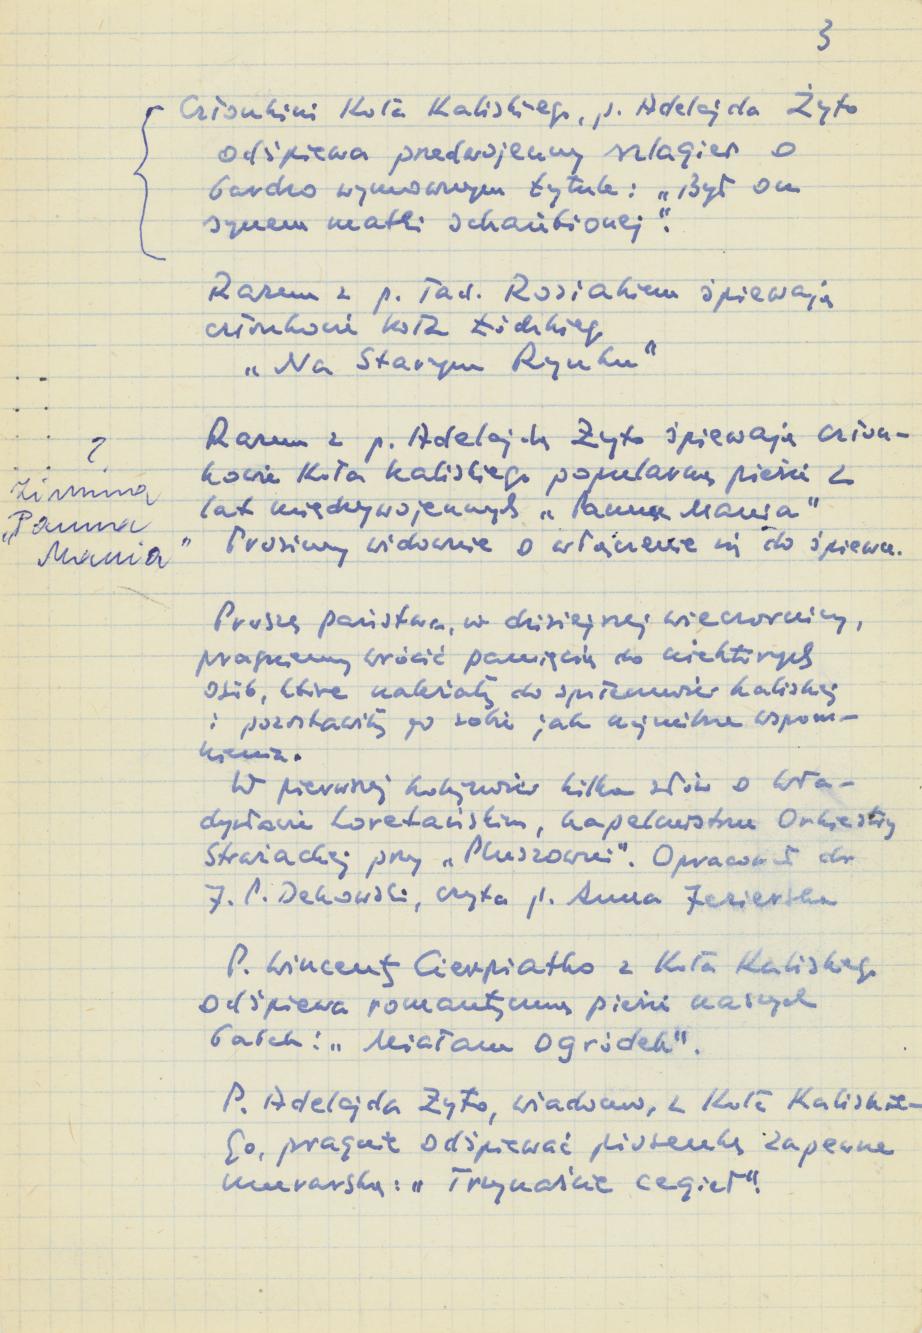 3
Członkini Koła Kaliskiego, p. Adelajda Żyto
odśpiewa przedwojenny szlagier o
bardzo wymownym tytule: „Był on
synem matki schańbionej".
Razem z p. Tad. Rosiakiem śpiewają
członkowie koła Łódzkiego
„Na Starym Rynku"
Razem z p. Adelajdą Żyto śpiewają człon-
kowie Koła Kaliskiego popularną pieśń z
lat międzywojennych „Panna Mania"
Prosimy widownie o włączenie się do śpiewu.
?
zimna
„Panna
Mania"
Proszę państwa, w dzisiejszej wieczornicy,
pragniemy wrócić pamięcią do niektórych
osób, które należały do społeczności kaliskiej
i pozostawiły po sobie jak najmilsze wspom-
nienia.
W pierwszej kolejności kilka słów o Wła-
dysławie Loretańskim, kapelmistrzu Orkiestry
Strażackiej przy „Pluszowni". Opracował dr
J. P. Dekowski, czyta p. Anna Jezierska
P. Wincenty Cierpiatko z Koła Kaliskiego
odśpiewa romantyczną pieśń naszych
babek: „Miałam ogródek".
P. Adelajda Żyto, wiadomo, z Koła Kaliskie-
go, pragnie odśpiewać piosenkę zapewne
murarską: „Trzynaście cegieł".